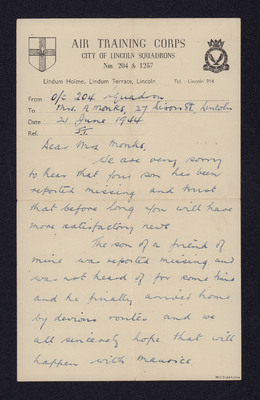 AIR TRAINING CORPS
CITY OF LINCOLN SQUADRONS
Nos. 204 & 1237
Lindum Holme, Lindum Terrace, Lincoln Tel. Lincoln 914
From O/C 204 Squadron
To Mrs. A Monks, 27 St, Lincoln
Date 21 June 1944
Ref.
Dear Mrs Monks,
We are very sorry
to hear that your son has been
reported missing and trust
that before long you will have
more satisfactory news
The son of a friend of
mine was reported missing and
was not heard of for some time
and he finally arrived home
by devious routes and we
all sincerely hope that will
happen with Maurice